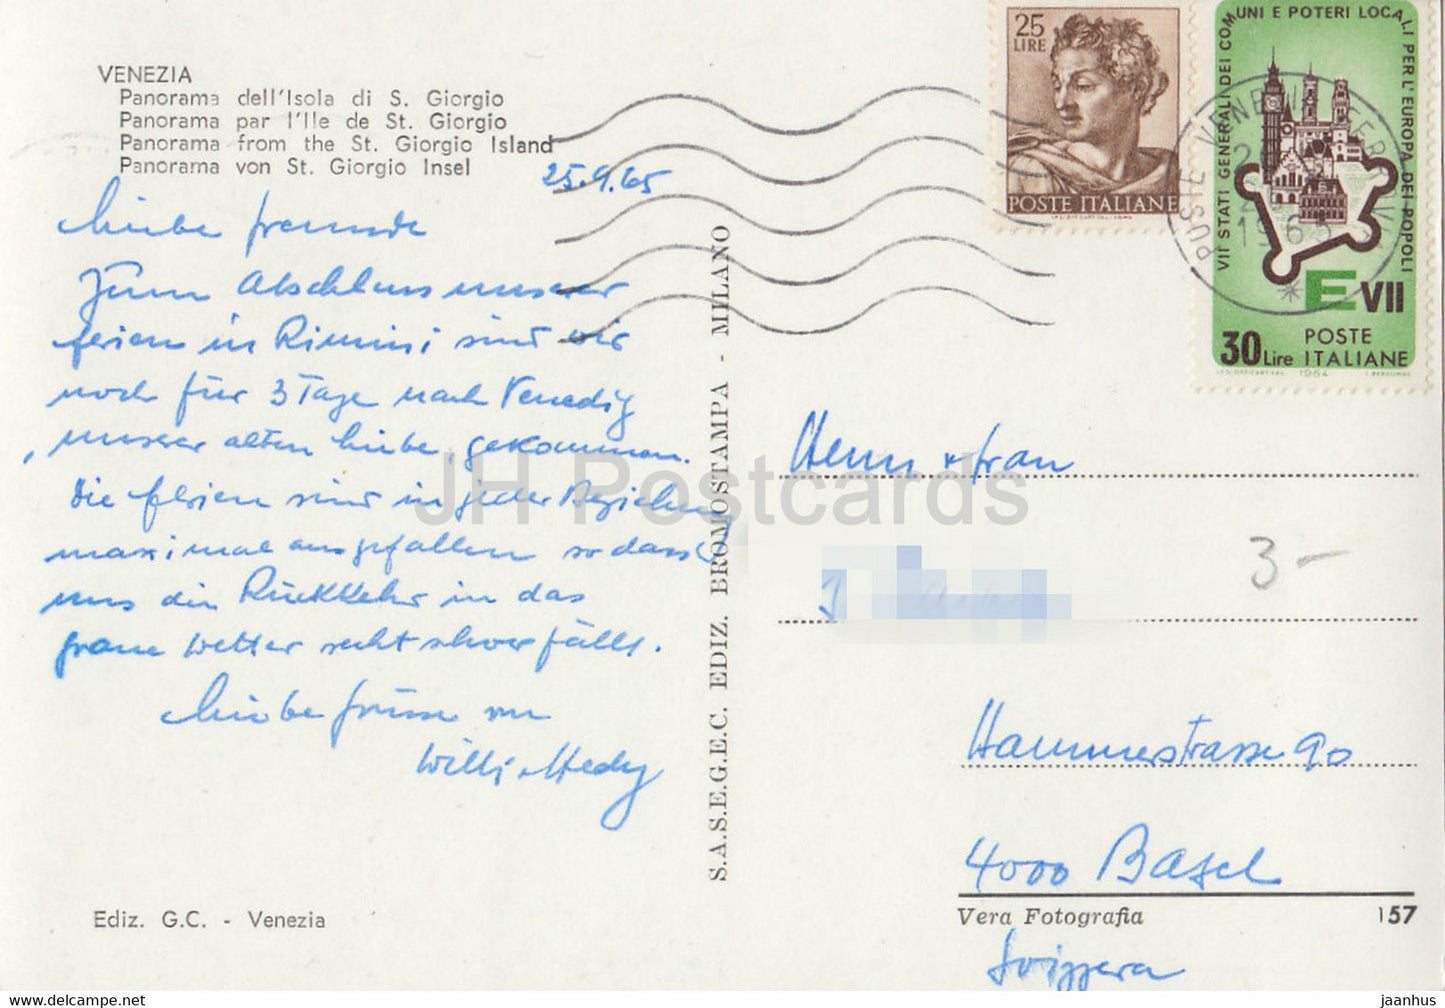 VENEZIA
Panorama dell'Isola di S. Giorgio
Panorama par l'Ile de St. Giorgio
Panorama from the St. Giorgio Island
Panorama von St. Giorgio Insel
25.9.65
Liebe Freunde
Zum Abschluss unserer
Ferien in Rimini sind wir
noch für 3 Tage nach Venedig
, unserer alten Liebe, gekommen.
Die Ferien sind in jeder Beziehung
maximal ausgefallen so dass
uns die Rückkehr in das
graue Wetter recht schwer fällt.
Liebe Grüsse von
Willi + Hedy
Ediz. G.C. - Venezia
S.A.S.E.G.E.C. EDIZ. BROMOSTAMPA - MILANO
25
LIRE
POSTE ITALIANE
VII STATI GENERALI DEI COMUNI E POTERI LOCALI PER L'EUROPA DEI POPOLI
E VII
30 Lire POSTE ITALIANE
1964
POSTE VENEZIA FERROVIA
1965
Herrn + Frau
3 -
Hammerstrasse 90
4000 Basel
Vera Fotografia
157
Svizzera
JH Postcards
hipstamp.com
jaanhus